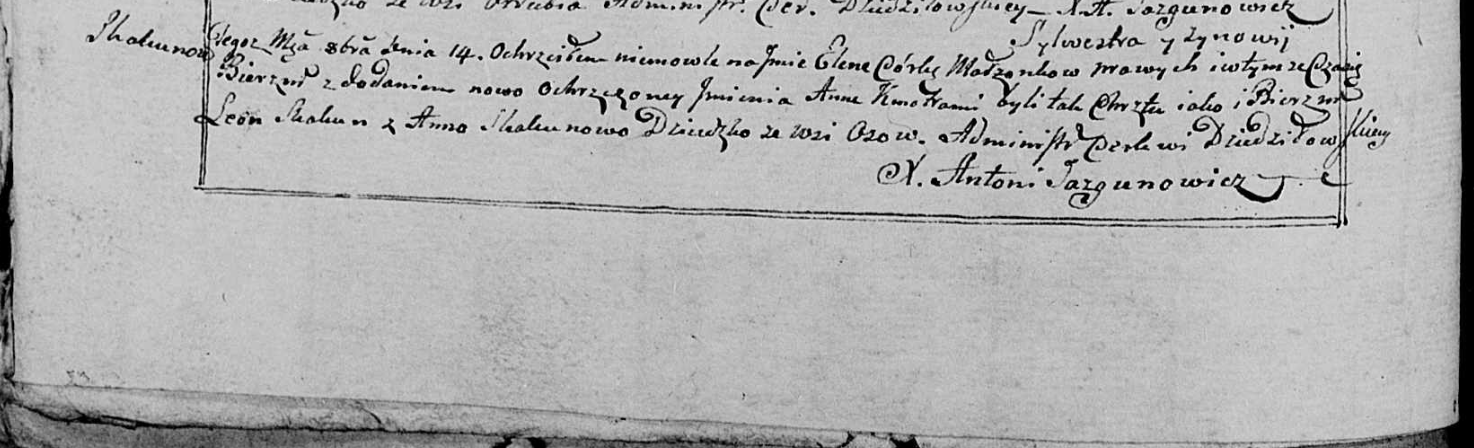 ze wsi Administr. Cer. Dziedziłowskiey X. A. Jazgunowicz
Skakunow
Sylwestra y Zynowij
Tegoż Mça 8brã dnia 14. Ochrzciłem niemowle na Jmie Elenę Córkę Małżonkow prawych i w tym że Czasie
Bierzm z dodaniem nowo Ochrzczoney Jmienia Anne Kmotrami byli tak Chrztu iako i Bierzm
Leon Skakun z Anno Skakunowo Dziedzko ze wsi Osow. Administr Cerkwi Dziedziłowskiey
X. Antoni Jazgunowicz